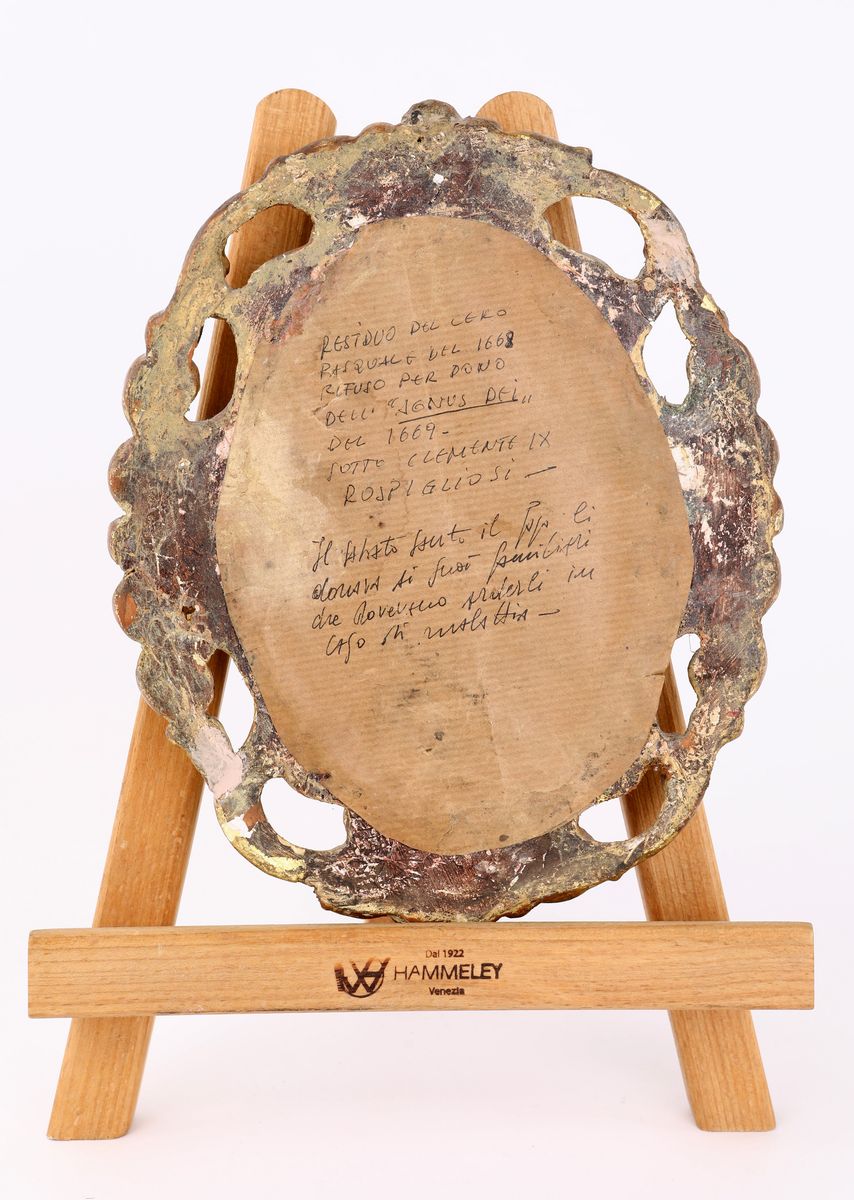 RESIDUO DEL CERO
PASQUALE DEL 1668
RIFUSO PER DONO
DELL' "AGNUS DEI"
DEL 1669-
SOTTO CLEMENTE IX
ROSPIGLIOSI -
Il sabato santo il Papa li
donava ai suoi familiari
che dovevano arderli in
caso di malattia -
Dal 1922
HAMMELEY
Venezia